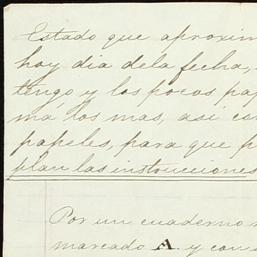 Estado que aproxim
hoy dia dela fecha,
tengo y los pocos pap
má los mas, asi co
papeles, para que p
plan las instrucciones
Por un cuaderno
marcado A. y con